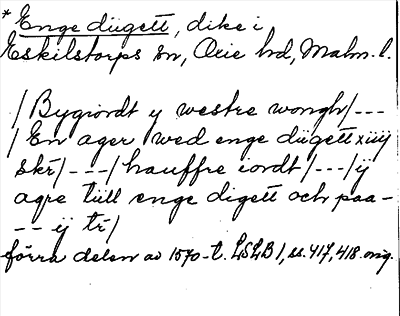 * Enge diigett, dike i
Eskilstorps sn, Oxie hd, Malm. l.
/Bygiordt y westre wongh/---
/En ager wed enge diigett xiiij
skr/---/hauffre iordt/---/ij
agre tiill enge digett och paa-
-- ij tr/
förra delen av 1570-t. LSLB 1, ss. 417, 418. orig.